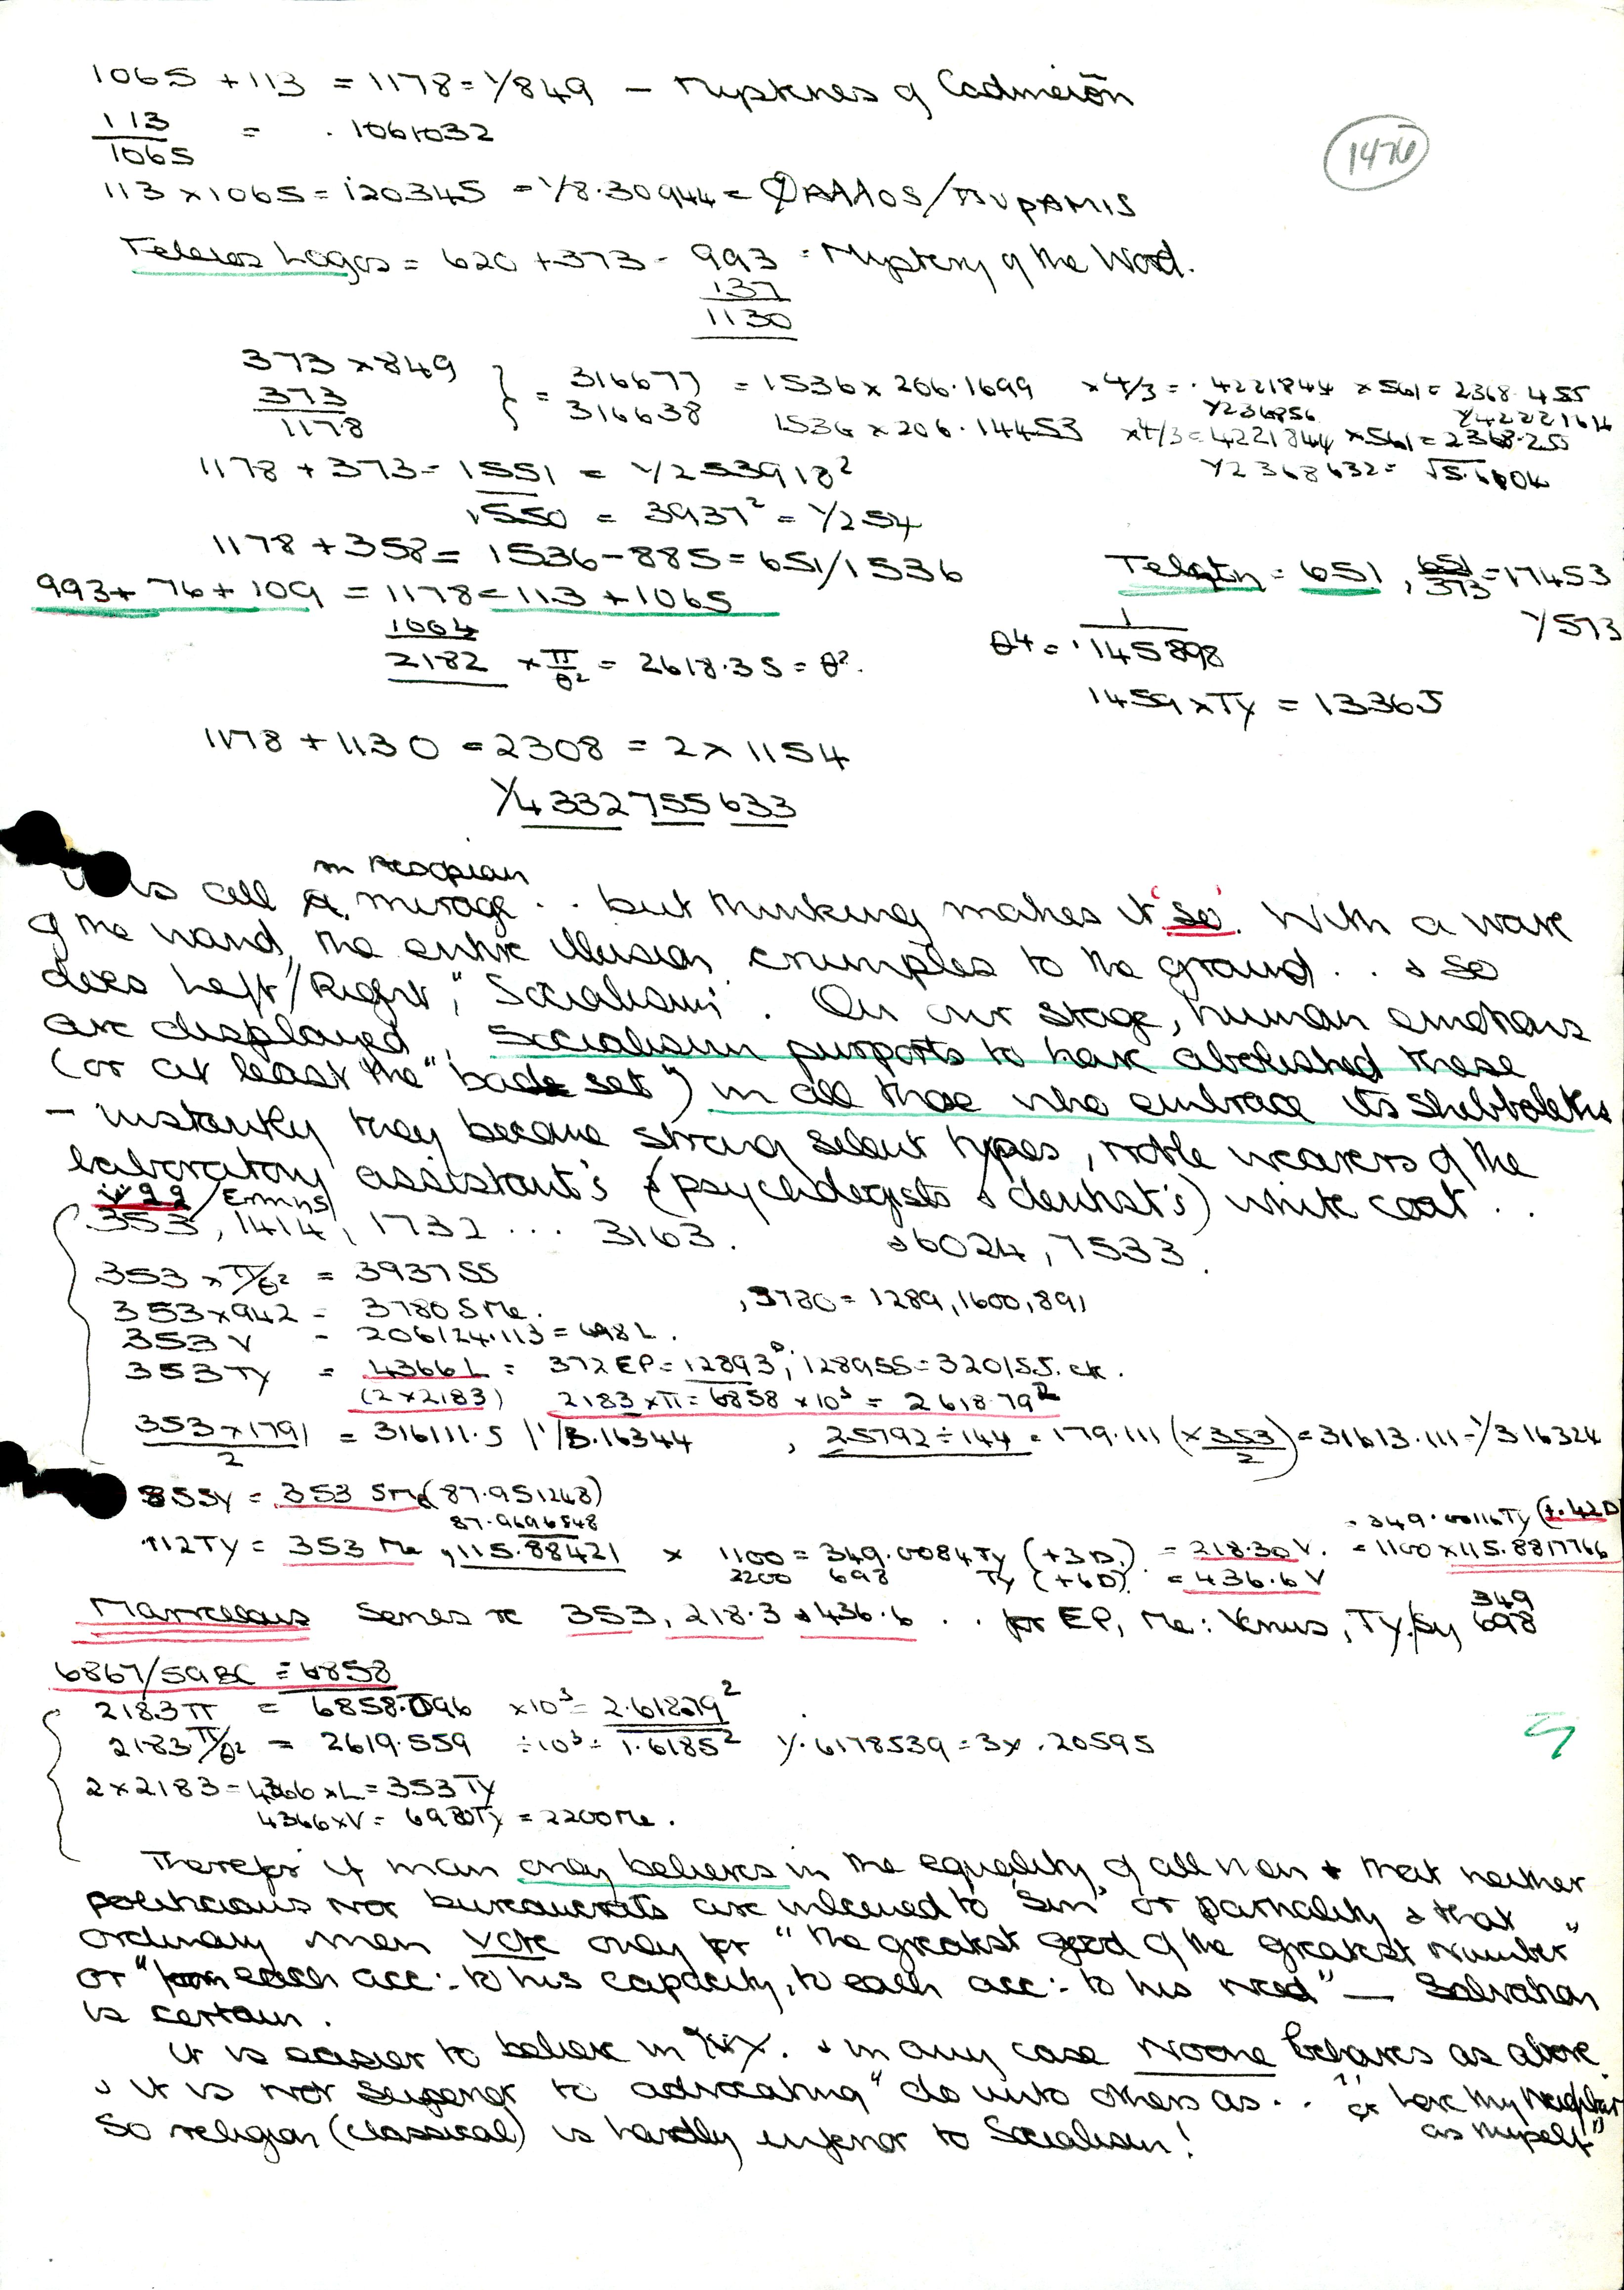 1065 + 113 = 1178 = 1/849 – Mysteries of Cadmeiōn
113/1065 = .1061032
1476
113 x 1065 = 120345 = 1/8.30944 = φAλλOS/πυρAMIS
Teleios Logos = 620 + 373 = 993 = Mystery of the Word.
137
1130
373 x 849 } = 316677 = 1536 x 206.1699 x 4/3 = .4221844 x 561 = 2368.455
373 1178 316638 1536 x 206.14453 x 4/3 = 4221844 x 561 = 2368.255
1/2368632 =
1178 + 373 = 1551 = 1/253918²
1550 = 3937² = 1/254
1178 + 358 = 1536 – 885 = 651/1536
Teletn = 651, 651/373 = 17453
1/573
993 + 76 + 109 = 1178 = 113 + 1065
1004
2182 x π/θ² = 2618.35 = θ².
θ⁴ = 1/.145898
1459 x Ty = 13365
1178 + 1130 = 2308 = 2 x 1154
1/4332755633
is all a mirage .. but thinking makes it 'so'. With a wave
of the wand, the entire illusion crumples to the ground .. & so
does Left/Right, "Socialism". On our stage, human emotions
are displayed, Socialism purports to have abolished these
(or at least the "bad set") in all those who embrace its shibboleths
– instantly they become strong silent types, noble wearers of the
laboratory assistant's & (psychologists & dentist's) white coat ..
353, 1414, 1732 ... 3163. & 6024, 7533.
353 x π/θ² = 393755
353 x 942 = 3780 SMe. , 3780 = 1289, 1600, 891
353 V = 206124.113 = 698 L.
353 Ty = 4366 L = 372 EP = 12893 D; 128955 = 320155. ck.
(2 x 2183) 2183 x π = 6858 x 10³ = 2618.79²
353 x 1791 / 2 = 316111.5 | 1/3.16344 , 25792 ÷ 144 = 179.111 (x 353/2) = 31613.111 = 1/316324
855y = 353 SMe (87.951248)
87.9696548
= 349.00116 Ty (+.42D
.112Ty = 353 Me, 115.88421 x 1100 = 349.0084 Ty (+3D.) = 218.30 V. = 1100 x 115.8817766
2200 698 Ty (+6D). = 436.6 V
Marvellous Series re 353, 218.3 & 436.6 .. for EP, Me: Venus, Ty/Sy 349 698
6867/59BC = 6858
2183 π = 6858.096 x10³ = 2.61879²
2183 π/θ² = 2619.559 ÷10³ = 1.6185² 1/.6178539 = 3 x .20595
2 x 2183 = 4366 x L = 353 Ty
4366 x V = 6980Ty = 2200 Me.
Therefor if man only believes in the equality of all men + that neither
politicians nor bureaucrats are inclined to 'Sin' or partiality & that
ordinary men vote only for "the greatest good of the greatest number"
or "from each acc:- to his capacity, to each acc:- to his need" — Salvation
is certain.
It is easier to believe in . & in any case No one behaves as above
& it is not Superior to advocating "do unto others as .." or "love thy Neighbour
as thyself"
So religion (classical) is hardly inferior to Socialism!